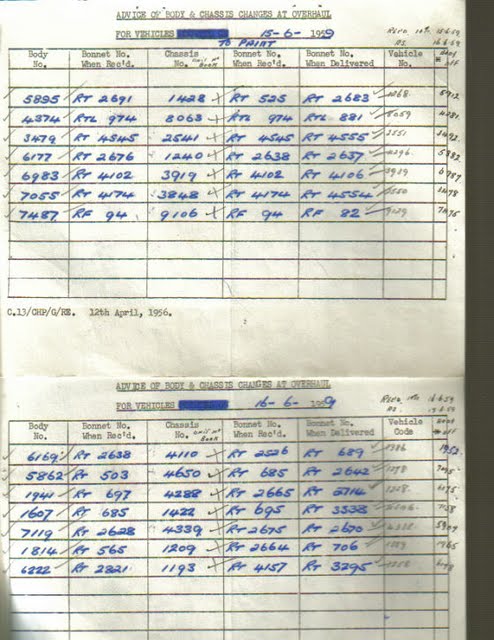 ADVICE OF BODY & CHASSIS CHANGES AT OVERHAUL
FOR VEHICLES 15-6-1959
TO PAINT
Body No. Bonnet No. When Rec'd. Chassis No. Unit No Book Bonnet No. When Rec'd. Bonnet No. When Delivered Vehicle No.
5895 RT 2691 1428 RT 525 RT 2683 1268
4374 RTL 974 8063 RTL 974 RTL 881 8059
3479 RT 4545 2541 RT 4545 RT 4555 2551
6177 RT 2676 1240 RT 2638 RT 2637
6983 RT 4102 3919 RT 4102 RT 4106
7055 RT 4174 3848 RT 4174 RT 4554
7487 RF 94 9106 RF 94 RF 82
C.13/CHP/G/RE. 12th April, 1956.
ADVICE OF BODY & CHASSIS CHANGES AT OVERHAUL
FOR VEHICLES 16-6-1959
Body No. Bonnet No. When Rec'd. Chassis No. Unit No Book Bonnet No. When Rec'd. Bonnet No. When Delivered Vehicle Code
6169 RT 2638 4110 RT 2526 RT 689
5862 RT 503 4650 RT 685 RT 2642
1941 RT 697 4288 RT 2665 RT 2714
1607 RT 685 1422 RT 695 RT 3538
7119 RT 2628 4339 RT 2675 RT 2670
1814 RT 565 1209 RT 2664 RT 706
6222 RT 2821 1193 RT 4157 RT 3295